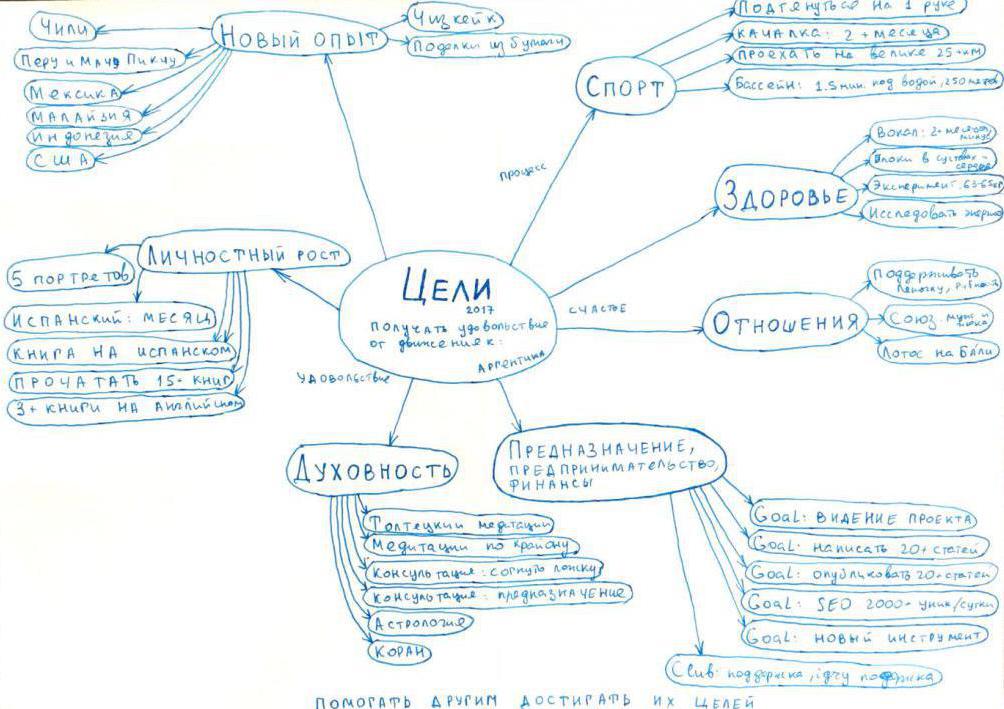 Чили
Перу и Мачу Пикчу
Мексика
Малайзия
Индонезия
США
Новый опыт
Чизкейк
Поделки из бумаги
Спорт
Подтянуться на 1 руке
Качалка: 2+ месяца
Проехать на велике 25+км
Бассейн: 1.5 мин. под водой, 250
процесс
Здоровье
Вокал: 2+ месяца,
Блоки в суставах -
сердце
Эксперимент: 63-65кг
Исследовать
Личностный рост
5 портретов
Испанский: месяц
Книга на испанском
Прочатать 15+ книг
3+ книги на английском
Цели
2017
получать удовольствие
от движения к:
Аргентина
счастье
удовольствие
Отношения
Поддерживать
Союз муж и
Лотос на Бали
Духовность
Толтецкий медитации
Медитации по Крайону
Консультация: согнуть ложку
Консультация: предназначение
Астрология
Коран
Предназначение,
предпринимательство,
финансы
Goal: видение проекта
Goal: написать 20+ статей
Goal: опубликовать 20+ статей
Goal: SEO 2000+ уник/сутки
Goal: новый инструмент
поддержка
помогать другим достигать их целей